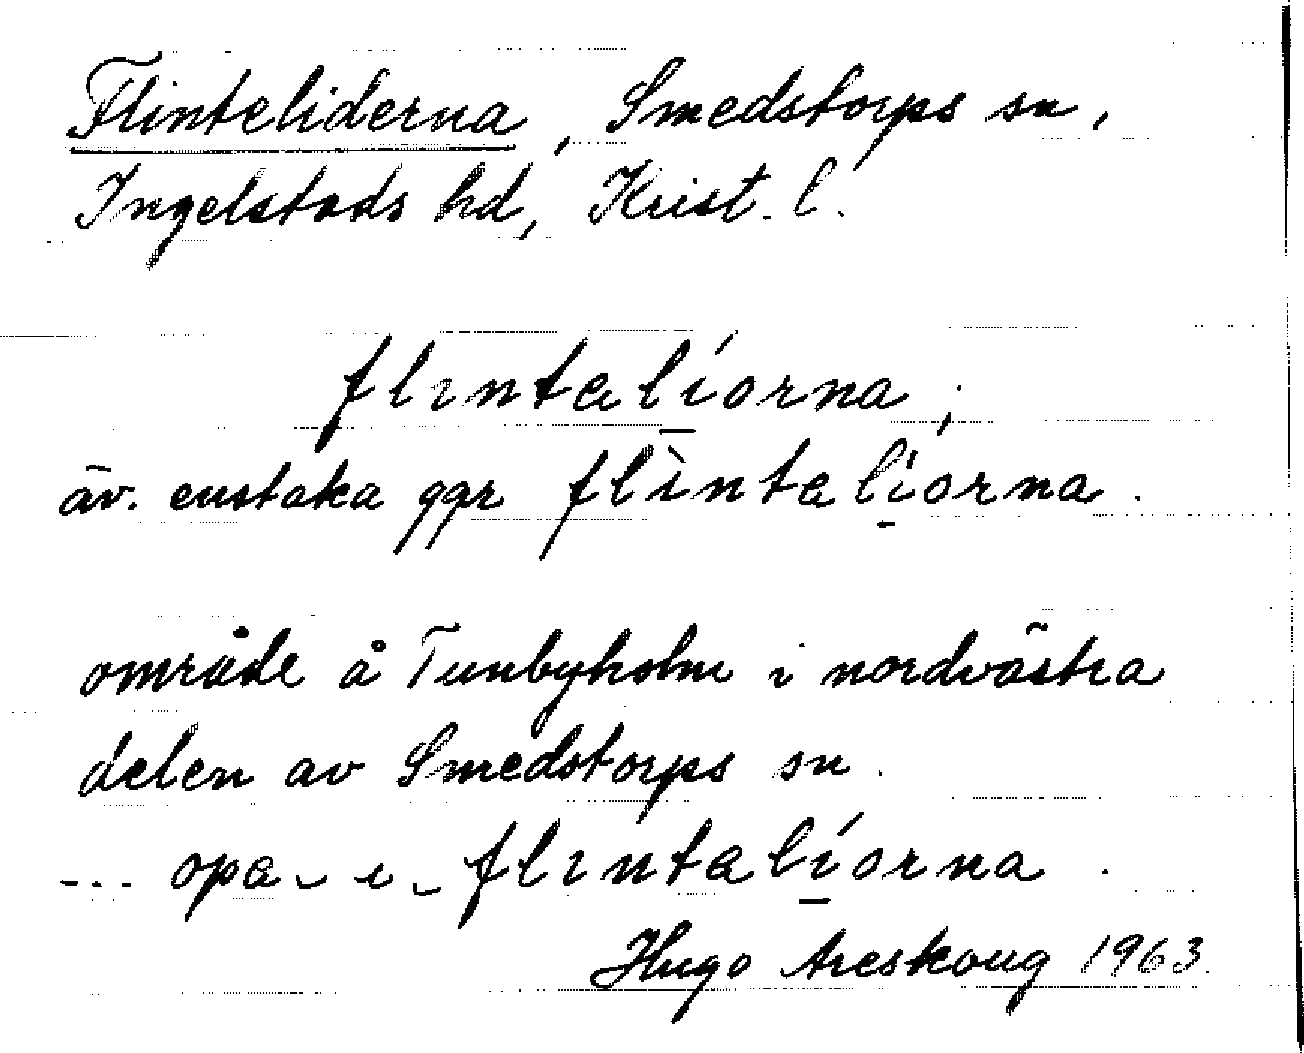 Flinteliderna, Smedstorps sn,
Ingelstads hd, Krist. l.
flintalíorna;
äv. enstaka ggr flìntalíorna.
område å Tunbyholm i nordvästra
delen av Smedstorps sn.
--- opa‿ ı‿ flintalíorna.
Hugo Areskoug 1963.